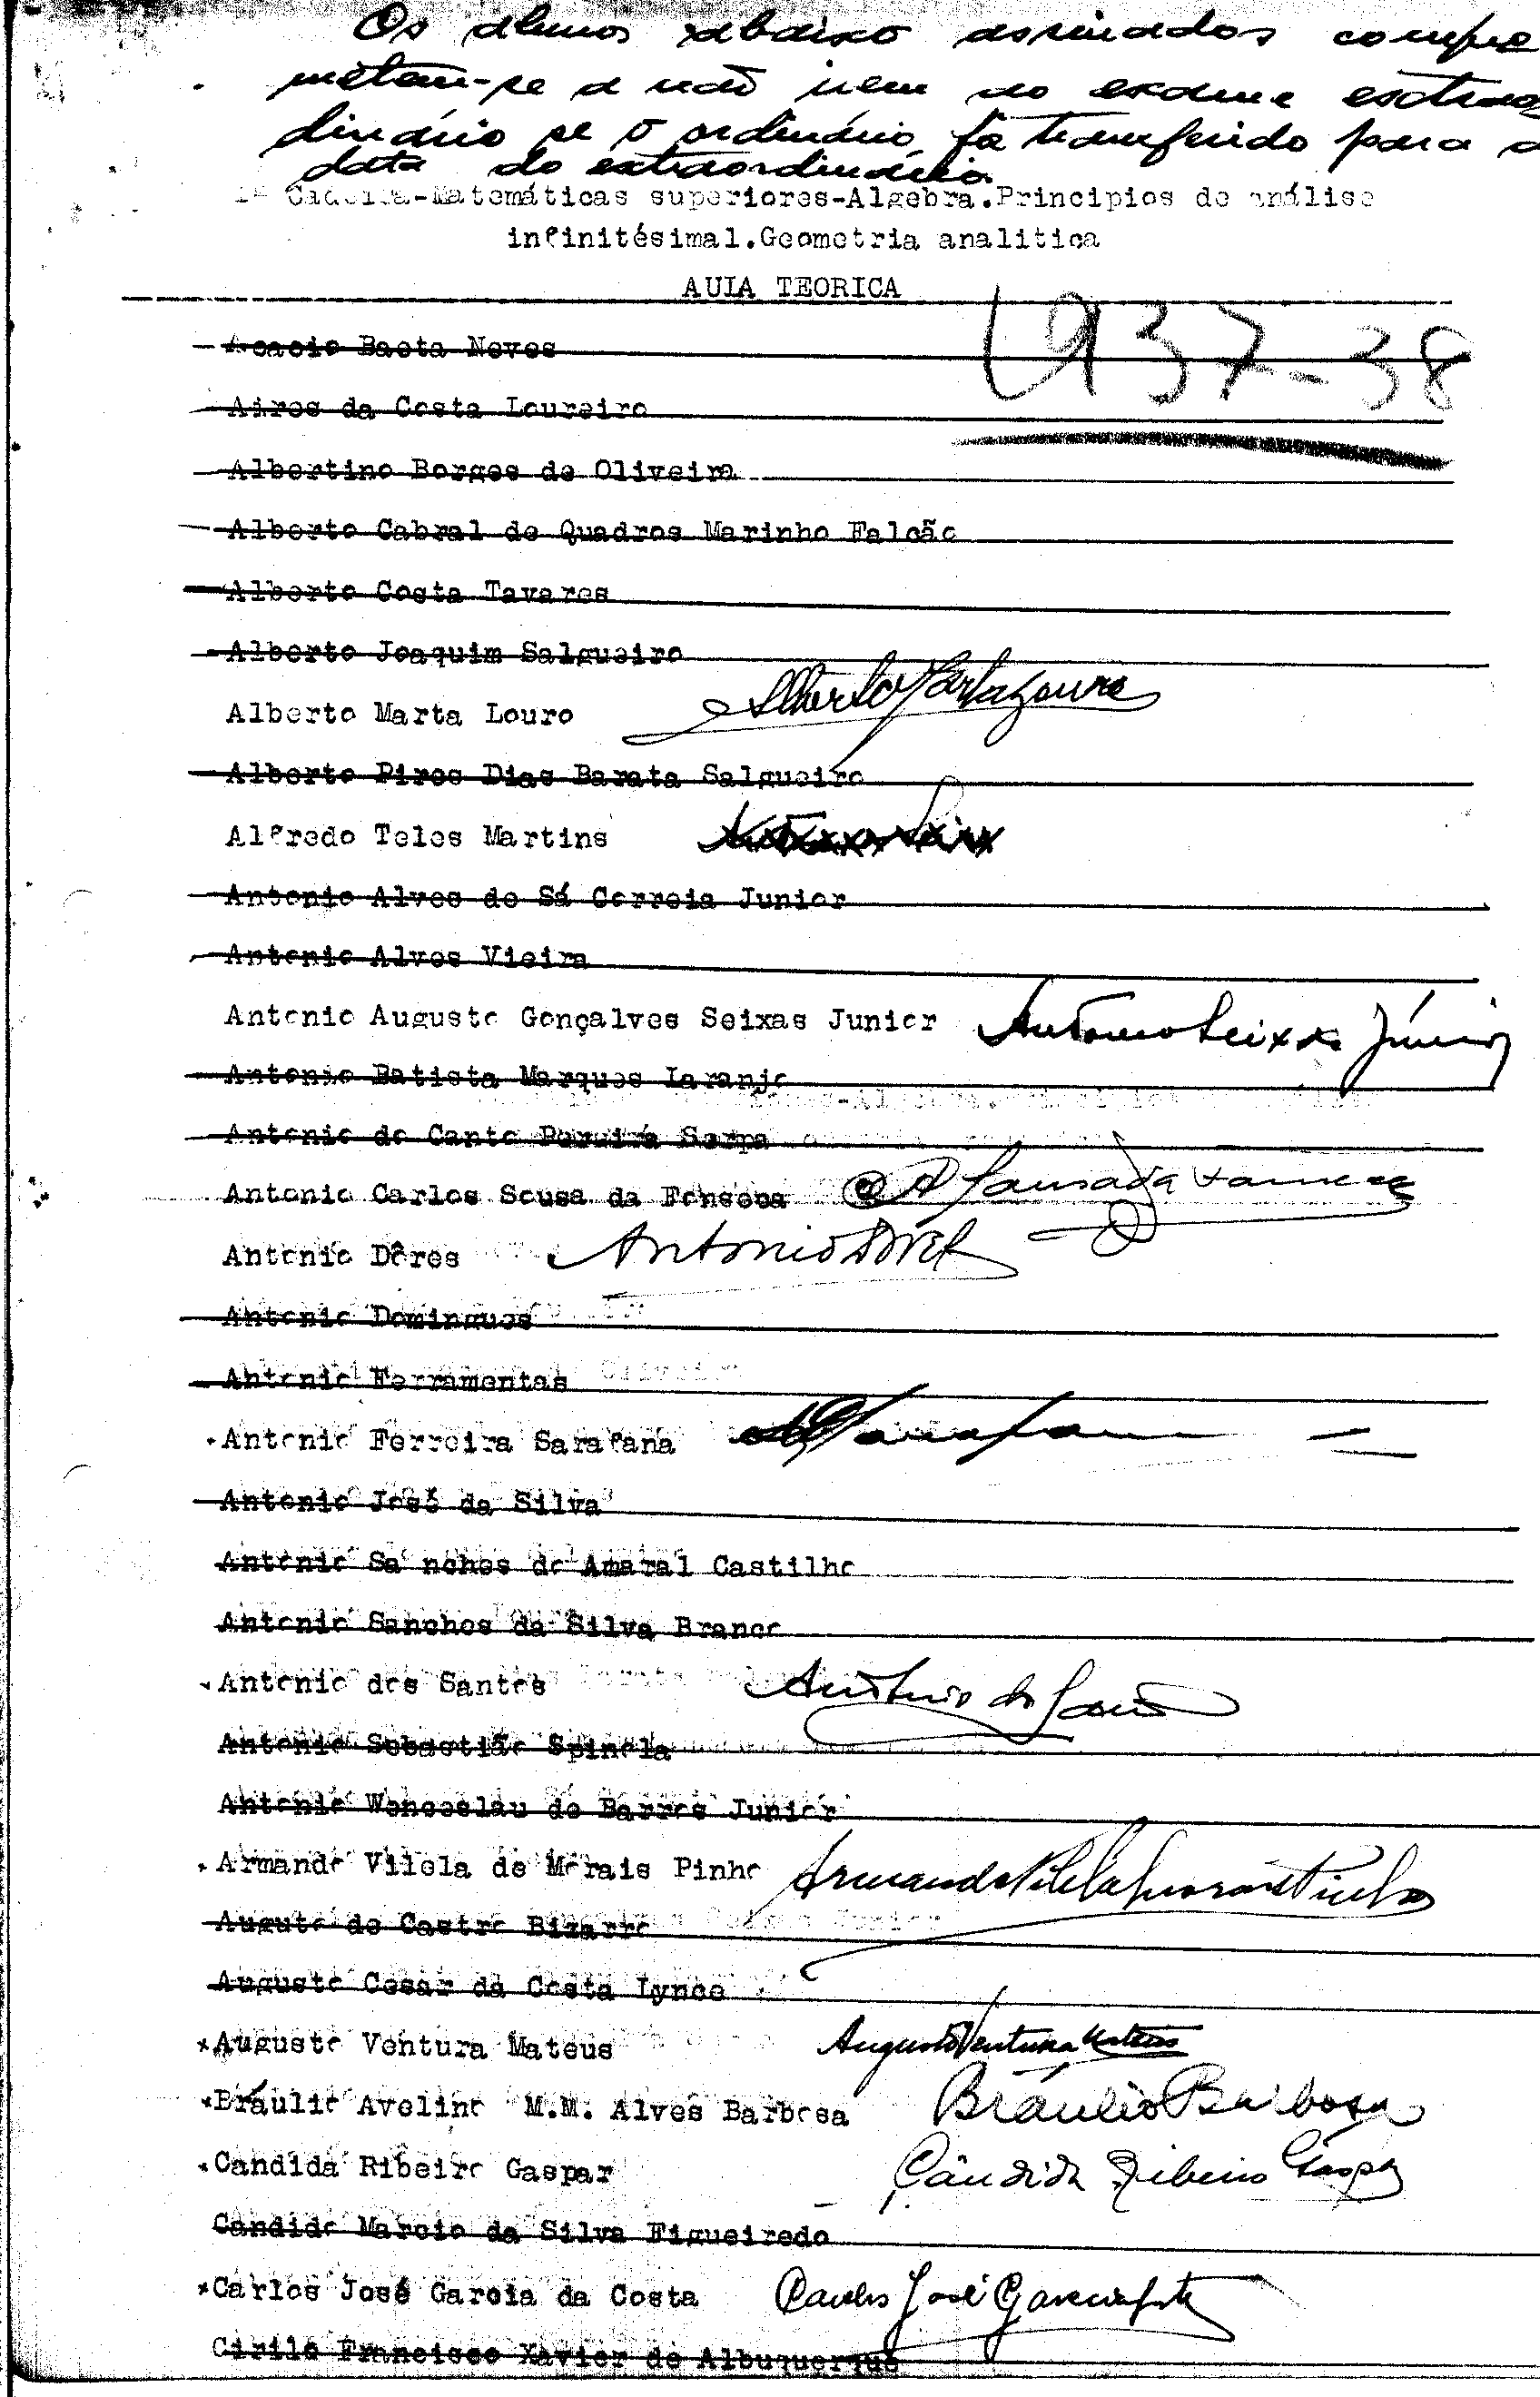 Os alunos abaixo assinados compro
metem-se a não irem ao exame extraor
dinário se o ordinário fôr transferido para a
data do extraordinário.
1ª Cadeira-Matemáticas superiores-Algebra.Principios de análise
infinitésimal.Geometria analitica
AULA TEORICA
1937-38
Acacio Baeta Neves
Aires da Costa Loureiro
Albertino Borges de Oliveira
Alberto Cabral de Quadros Marinho Falcão
Alberto Costa Tavares
Alberto Joaquim Salgueiro
Alberto Marta Louro Alberto Marta Louro
Alberto Pires Dias Barata Salgueiro
Alfredo Teles Martins
Antonio Alves de Sá Correia Junior
Antonio Alves Vieira
Antonio Augusto Gonçalves Seixas Junior Antonio Seixas Júnior
Antonio Batista Marques Laranjo
Antonio do Canto Pereira Serpa
Antonio Carlos Sousa da Fonseca
Antonio Dôres Antonio Dores
Antonio Domingues
Antonio Ferramentas
Antonio Ferreira Sarafana
Antonio José da Silva
Antonio Sa nches do Amaral Castilho
Antonio Sanches da Silva Branco
Antonio dos Santos António dos Santos
Antonio Sebastião Spinola
Antonio Wenceslau de Barros Junior
Armando Vilela de Morais Pinho Armando Vilela Morais Pinho
Auguto de Castro Bizarro
Augusto Cesar da Costa Lynce
Augusto Ventura Mateus Augusto Ventura Mateus
Bráulio Avelino M.M. Alves Barbosa Bráulio Barbosa
Candida Ribeiro Gaspar Cândida Ribeiro Gaspar
Candido Marcio da Silva Figueiredo
Carlos José Garcia da Costa Carlos José Garcia Costa
Cirilo Francisco Xavier de Albuquerque